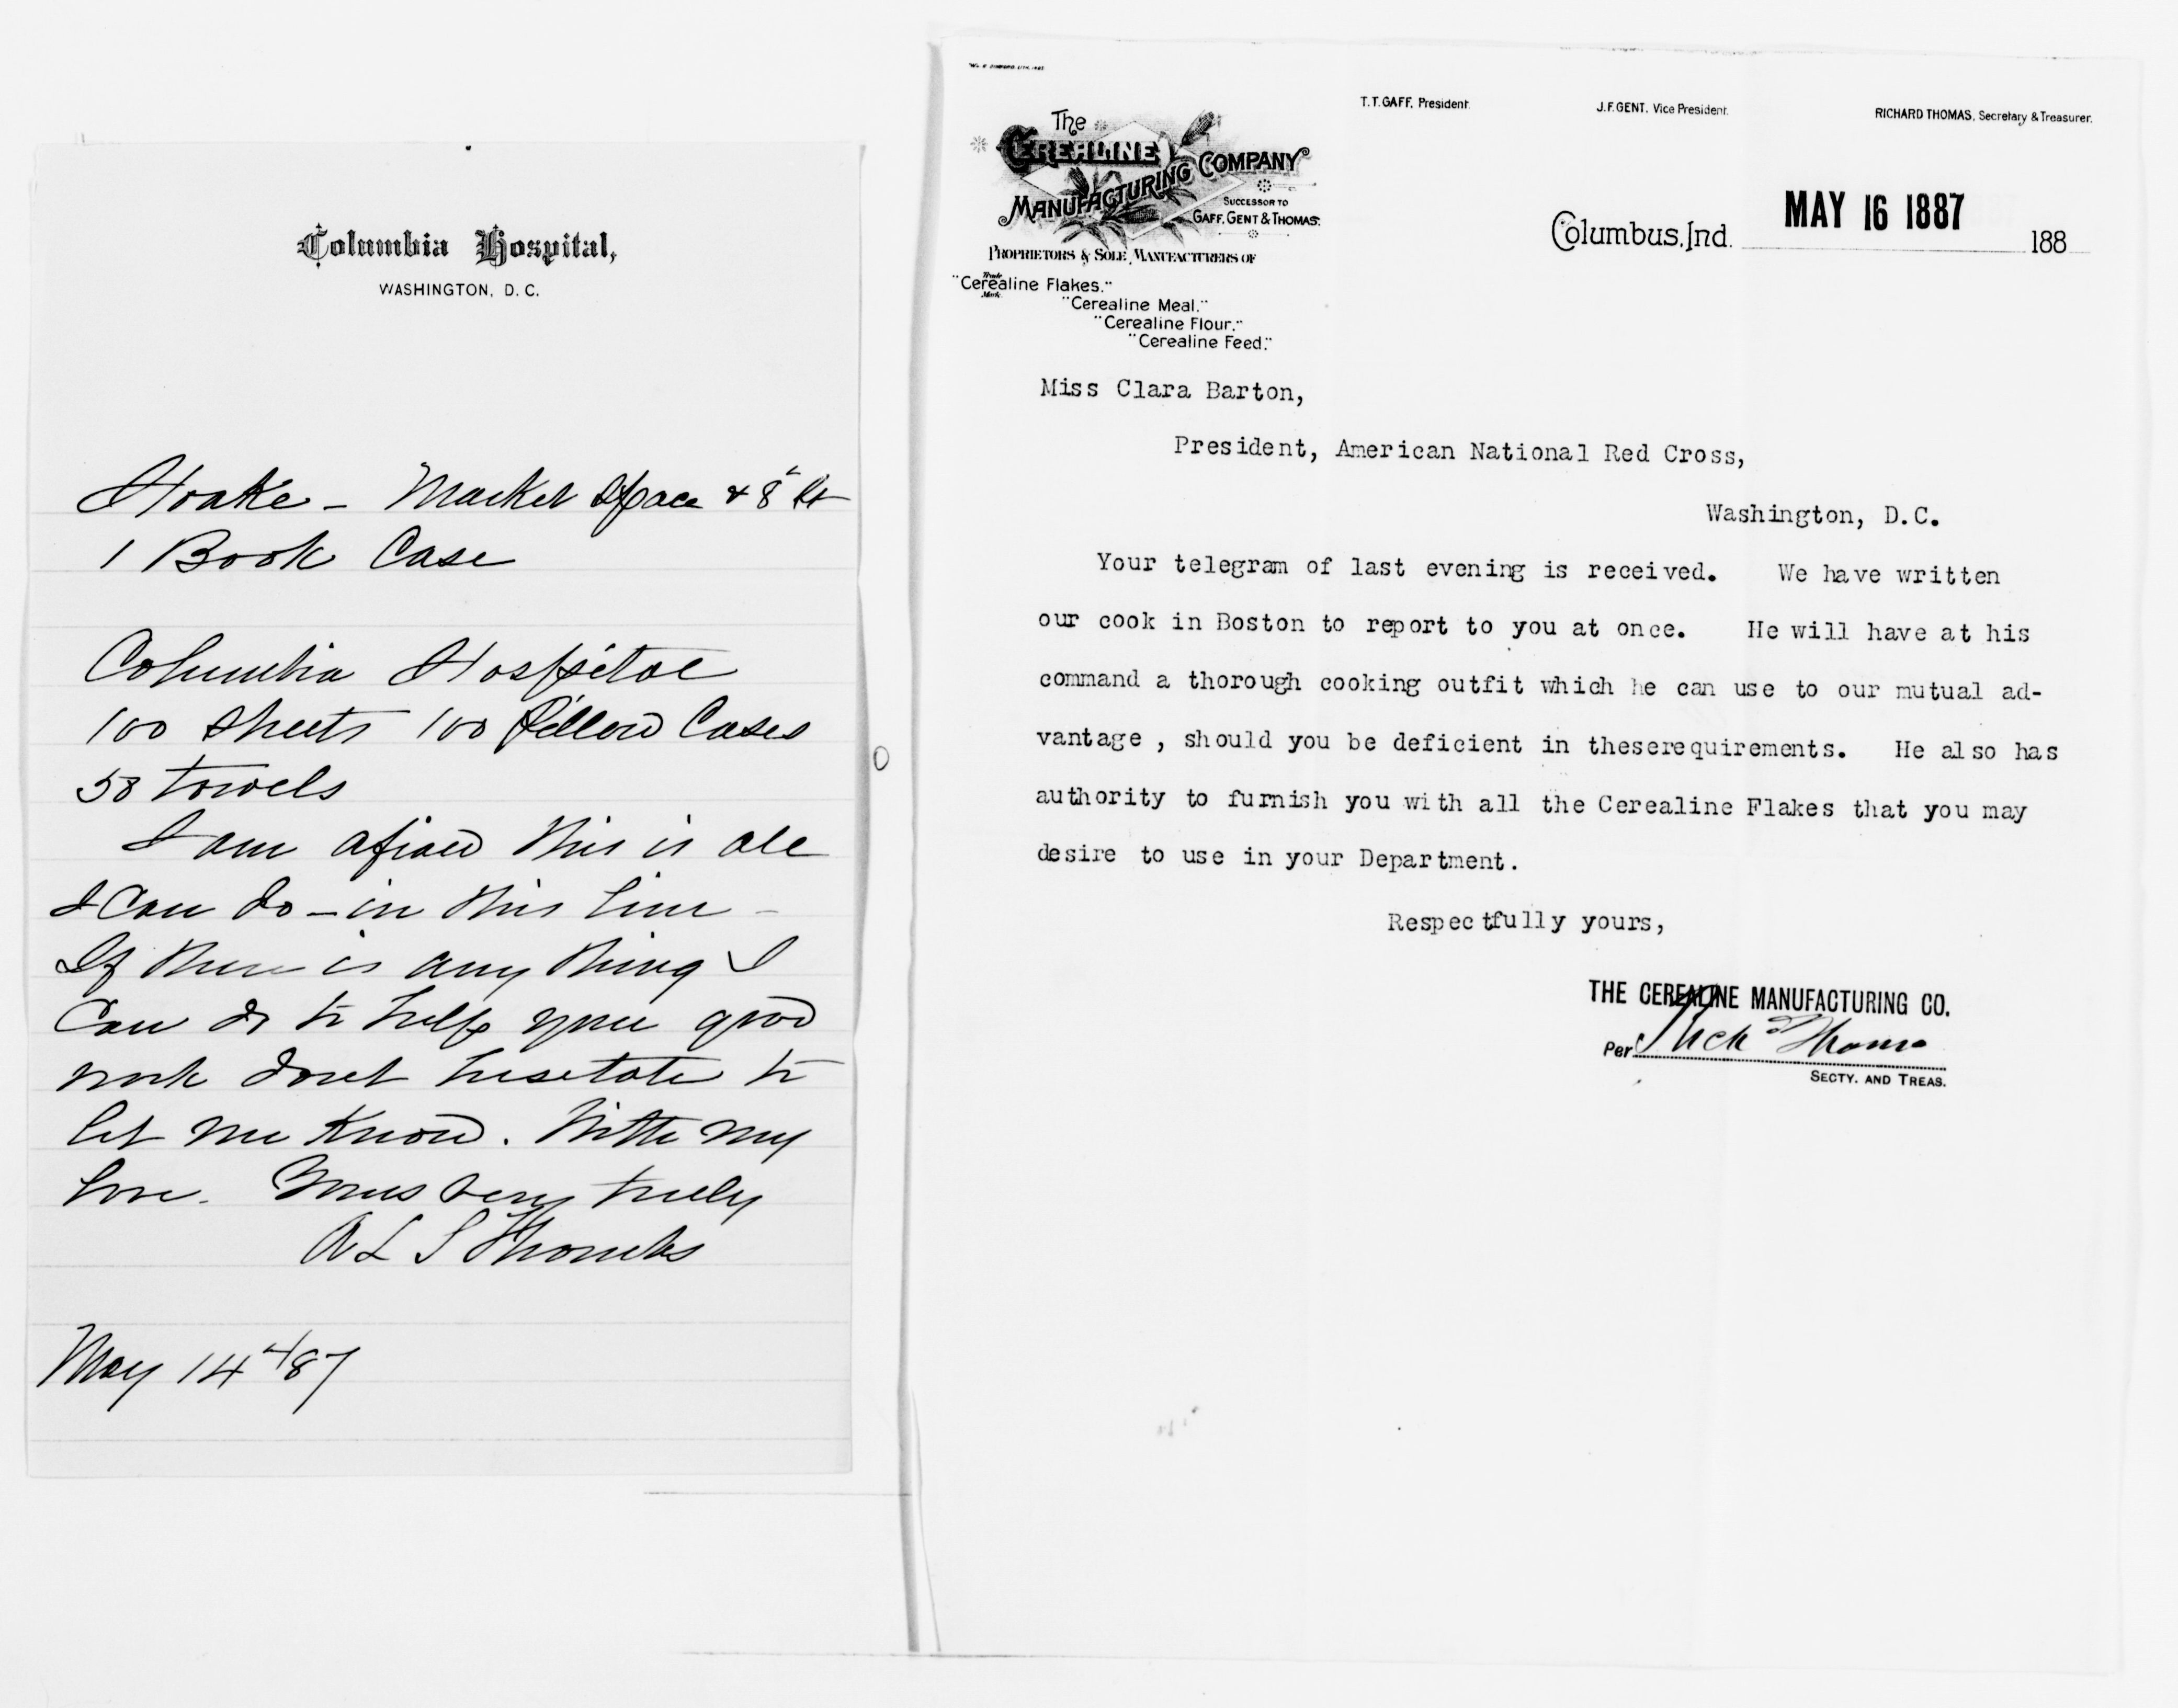 Columbia Hospital,
WASHINGTON, D. C.
Hoake - Market Space & 8" St
1 Book Case
Columbia Hospital
100 Sheets 100 Pillow Cases
58 Towels
I am afraid this is all
I can do - in this line -
If there is any thing I
can do to help your good
work dont hesitate to
let me know. With my
love. Yours very truly
May 14th/87
T. T. GAFF, President.
J. F. GENT, Vice President.
RICHARD THOMAS, Secretary & Treasurer.
The
CEREALINE
MANUFACTURING COMPANY
SUCCESSOR TO
GAFF, GENT & THOMAS.
PROPRIETORS & SOLE MANUFACTURERS OF
"Cerealine Flakes."
Trade Mark.
"Cerealine Meal."
"Cerealine Flour."
"Cerealine Feed."
Columbus, Ind. MAY 16 1887 188
Miss Clara Barton,
President, American National Red Cross,
Washington, D.C.
Your telegram of last evening is received. We have written
our cook in Boston to report to you at once. He will have at his
command a thorough cooking outfit which he can use to our mutual ad-
vantage , should you be deficient in theserequirements. He also has
authority to furnish you with all the Cerealine Flakes that you may
desire to use in your Department.
Respectfully yours,
THE CEREALINE MANUFACTURING CO.
Per Richd Thomas
SECTY. AND TREAS.